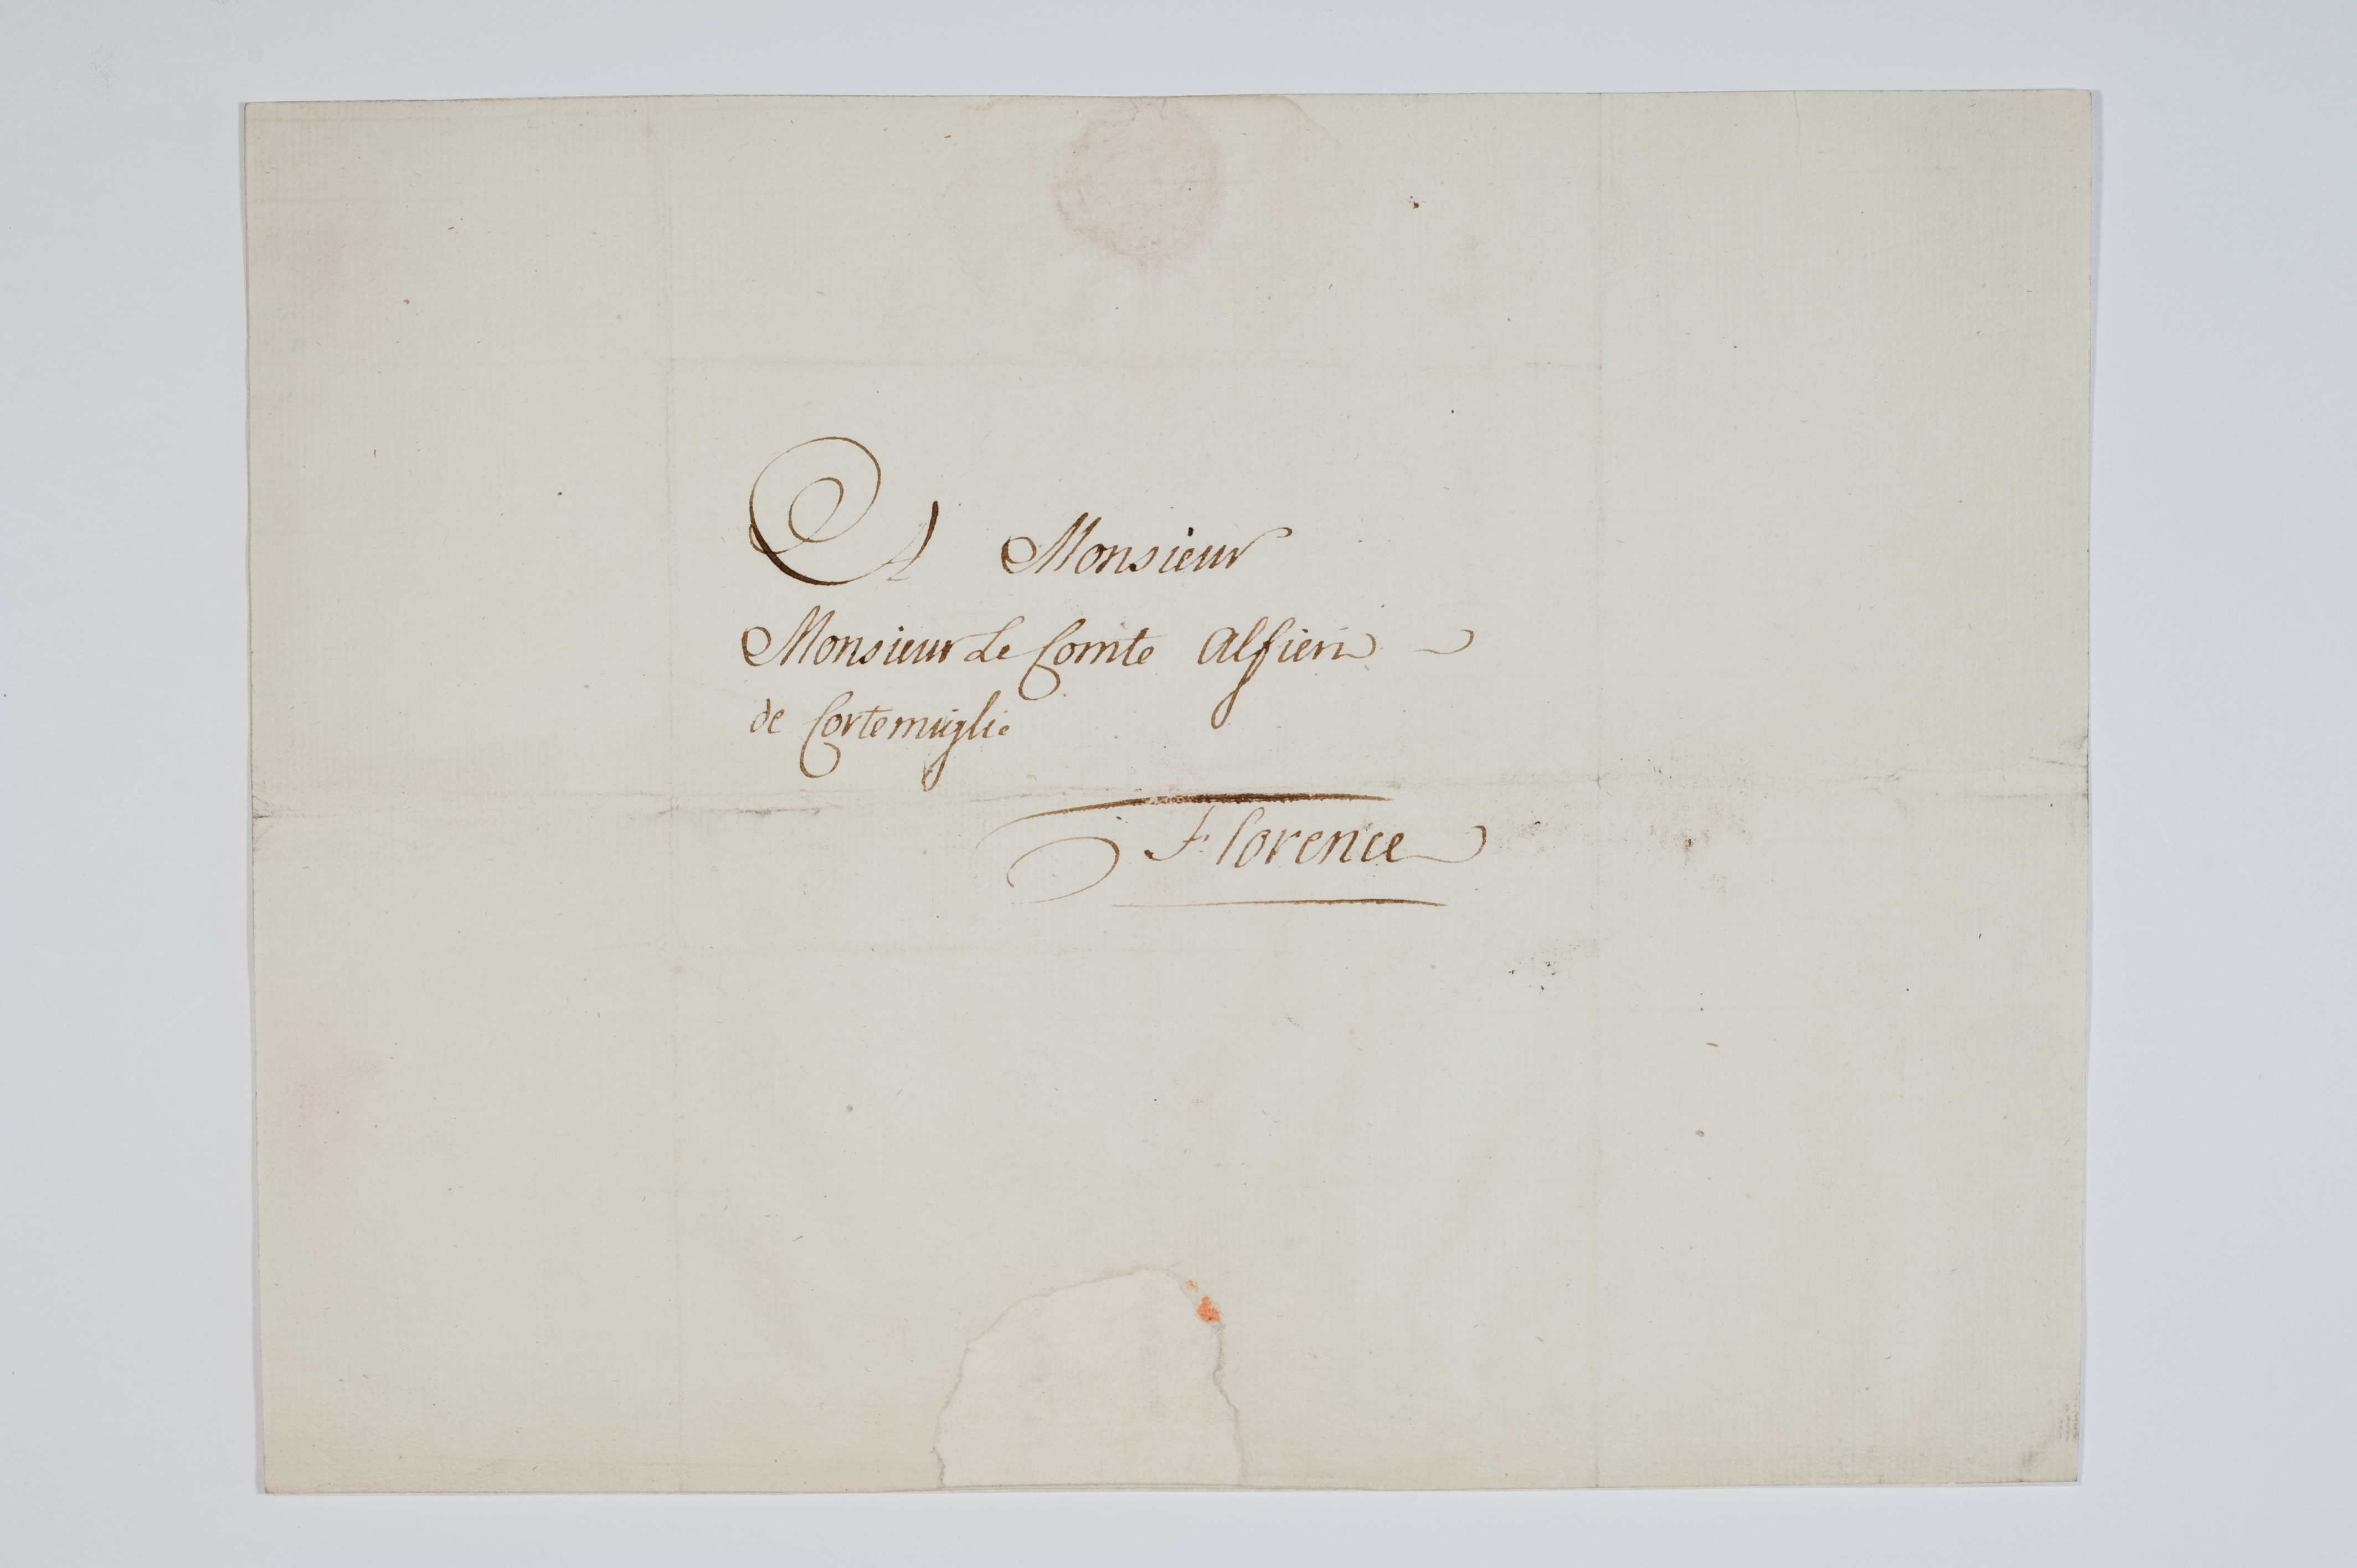 A Monsieur
Monsieur Le Comte Alfieri
de Cortemiglie
Florence